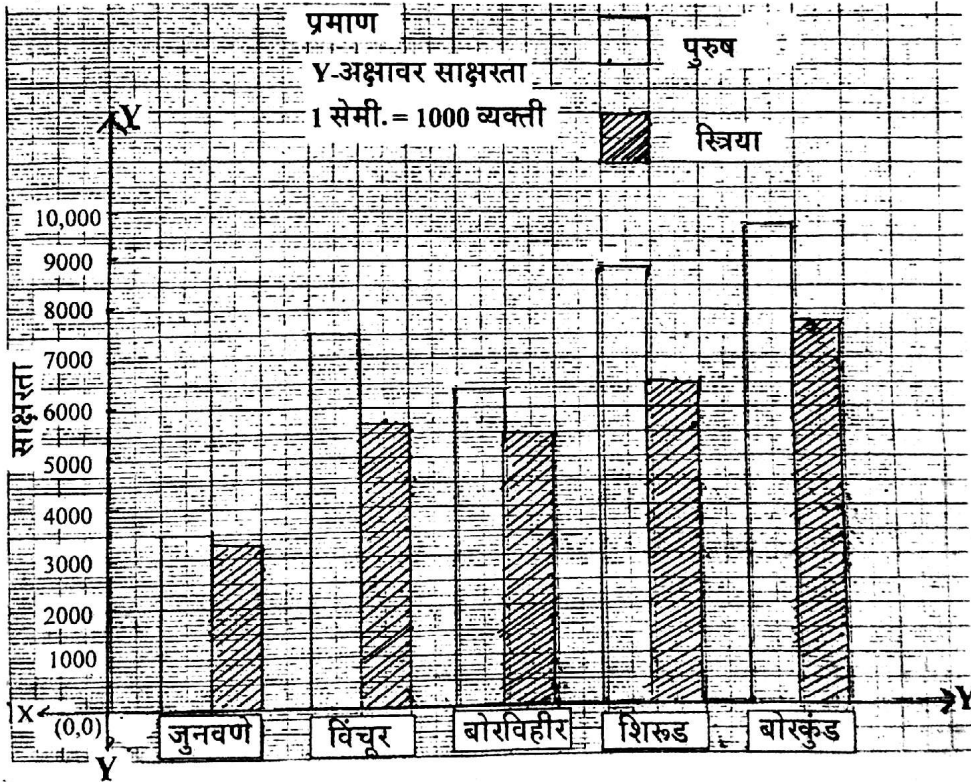 प्रमाण
Y-अक्षावर साक्षरता
1 सेमी. = 1000 व्यक्ती
पुरुष
स्त्रिया
Y
साक्षरता
10,000
9000
8000
7000
6000
5000
4000
3000
2000
1000
X
(0,0)
Y
Y
जुनवणे
विंचूर
बोरविहीर
शिरूड
बोरकुंड